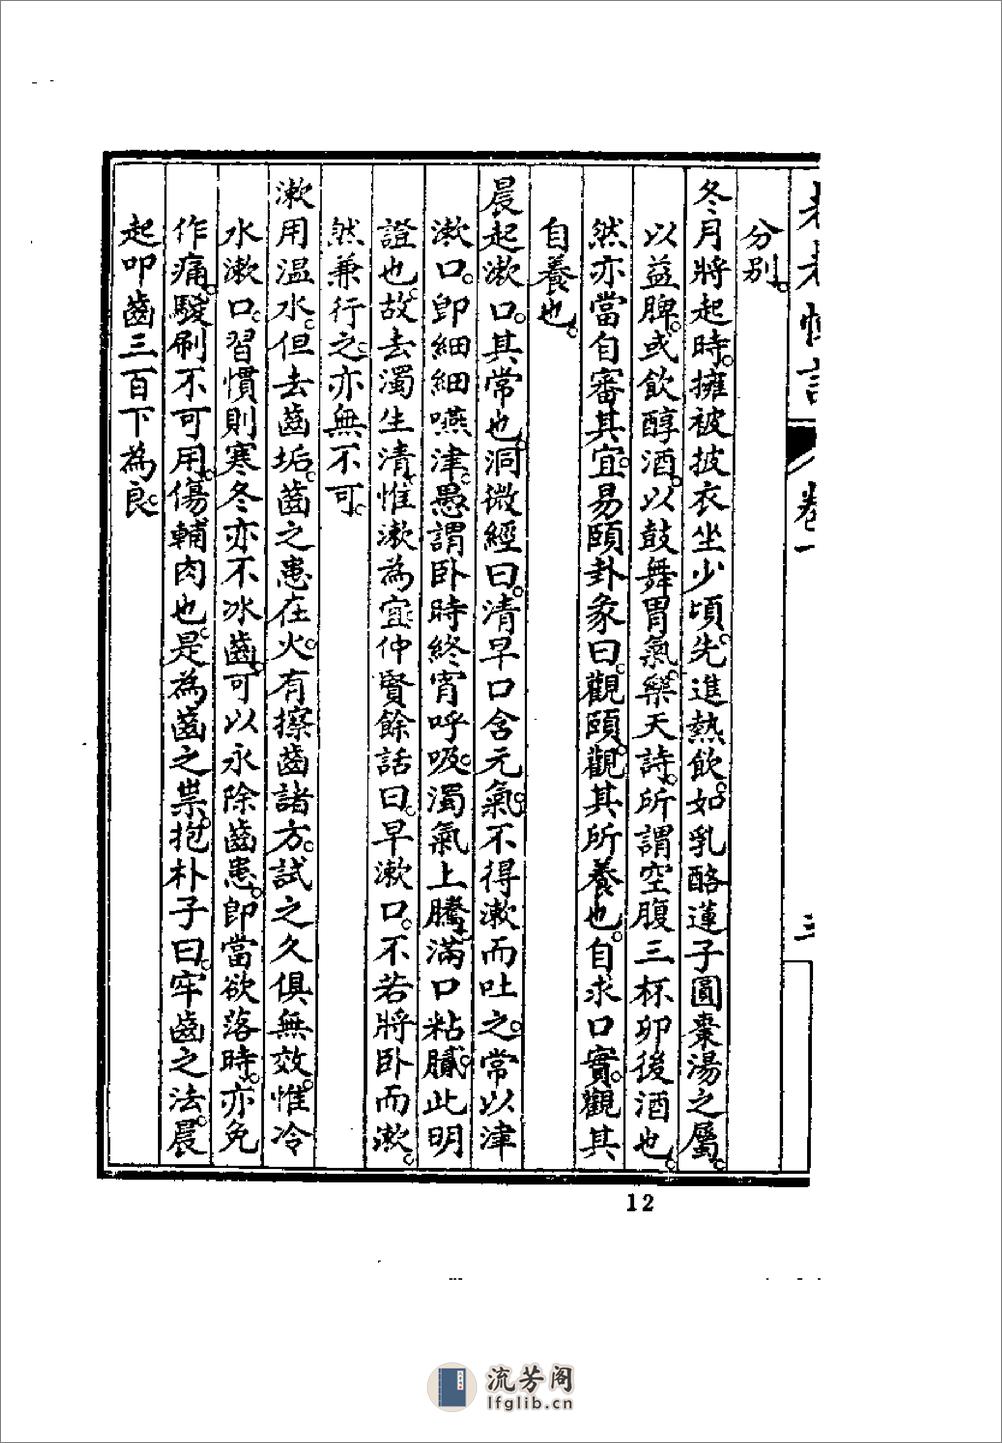 老老恒言 卷一 三
分别。
冬月將起時。擁被披衣坐少頃。先進熱飲。如乳酪蓮子圓棗湯之屬。
以益脾。或飲醇酒。以鼓舞胃氣。樂天詩。所謂空腹三杯卯後酒也。
然亦當自審其宜。易頤卦彖曰。觀頤。觀其所養也。自求口實。觀其
自養也。
晨起漱口。其常也。洞微經曰。清早口含元氣。不得漱而吐之。常以津
漱口。卽細細嚥津。愚謂卧時終宵呼吸。濁氣上騰。滿口粘膩。此明
證也。故去濁生清。惟漱為宜。仲賢餘話曰。早漱口。不若將卧而漱。
然兼行之。亦無不可。
漱用温水。但去齒垢。齒之患在火。有擦齒諸方。試之久俱無效。惟冷
水漱口。習慣則寒冬亦不冰齒。可以永除齒患。卽當欲落時。亦免
作痛。騣刷不可用。傷輔肉也。是為齒之祟。抱朴子曰。牢齒之法。晨
起叩齒三百下為良。
12
流芳阁
lfglib.cn